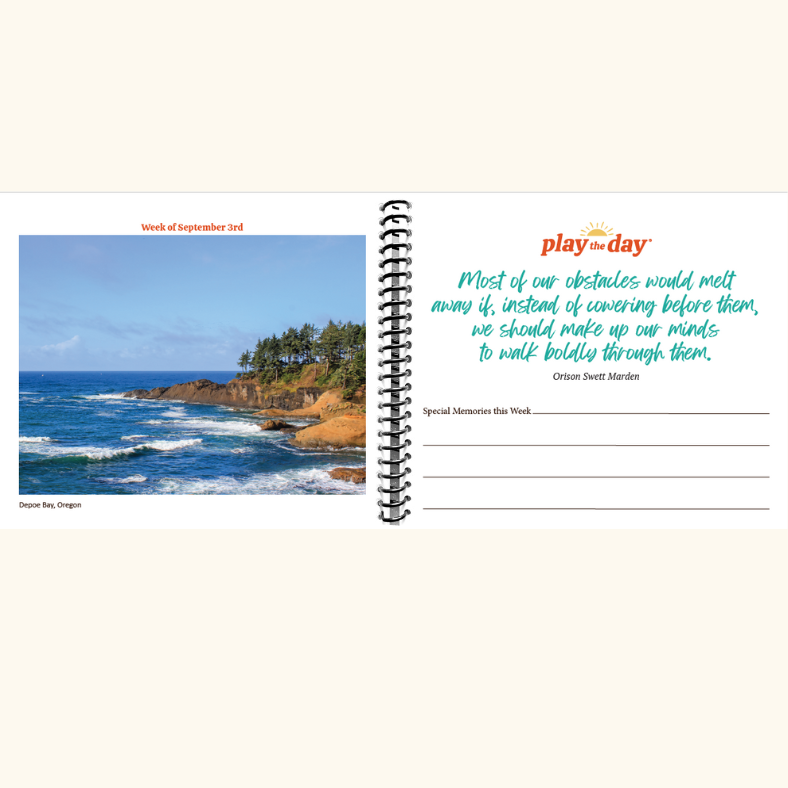 Week of September 3rd
Depoe Bay, Oregon
play the day
Most of our obstacles would melt
away if, instead of cowering before them,
we should make up our minds
to walk boldly through them.
Orison Swett Marden
Special Memories this Week